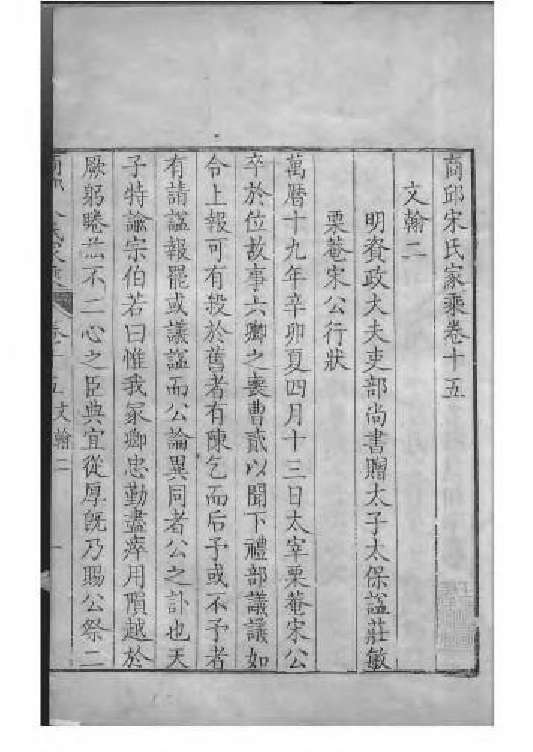 商邱宋氏家乘卷十五
文翰二
明資政大夫吏部尚書贈太子太保諡莊敏
栗菴宋公行狀
萬曆十九年辛卯夏四月十三日太宰栗菴宋公
卒於位故事六卿之喪曹貳以聞下禮部議議如
令上報可有投於舊者有陳乞而后予或不予者
有請諡報罷或議諡而公論異同者公之訃也天
子特諭宗伯若曰惟我冢卿忠勤盡瘁用隕越於
厥躬睠玆不二心之臣典宜從厚旣乃賜公祭二
卷十五 文翰二 一